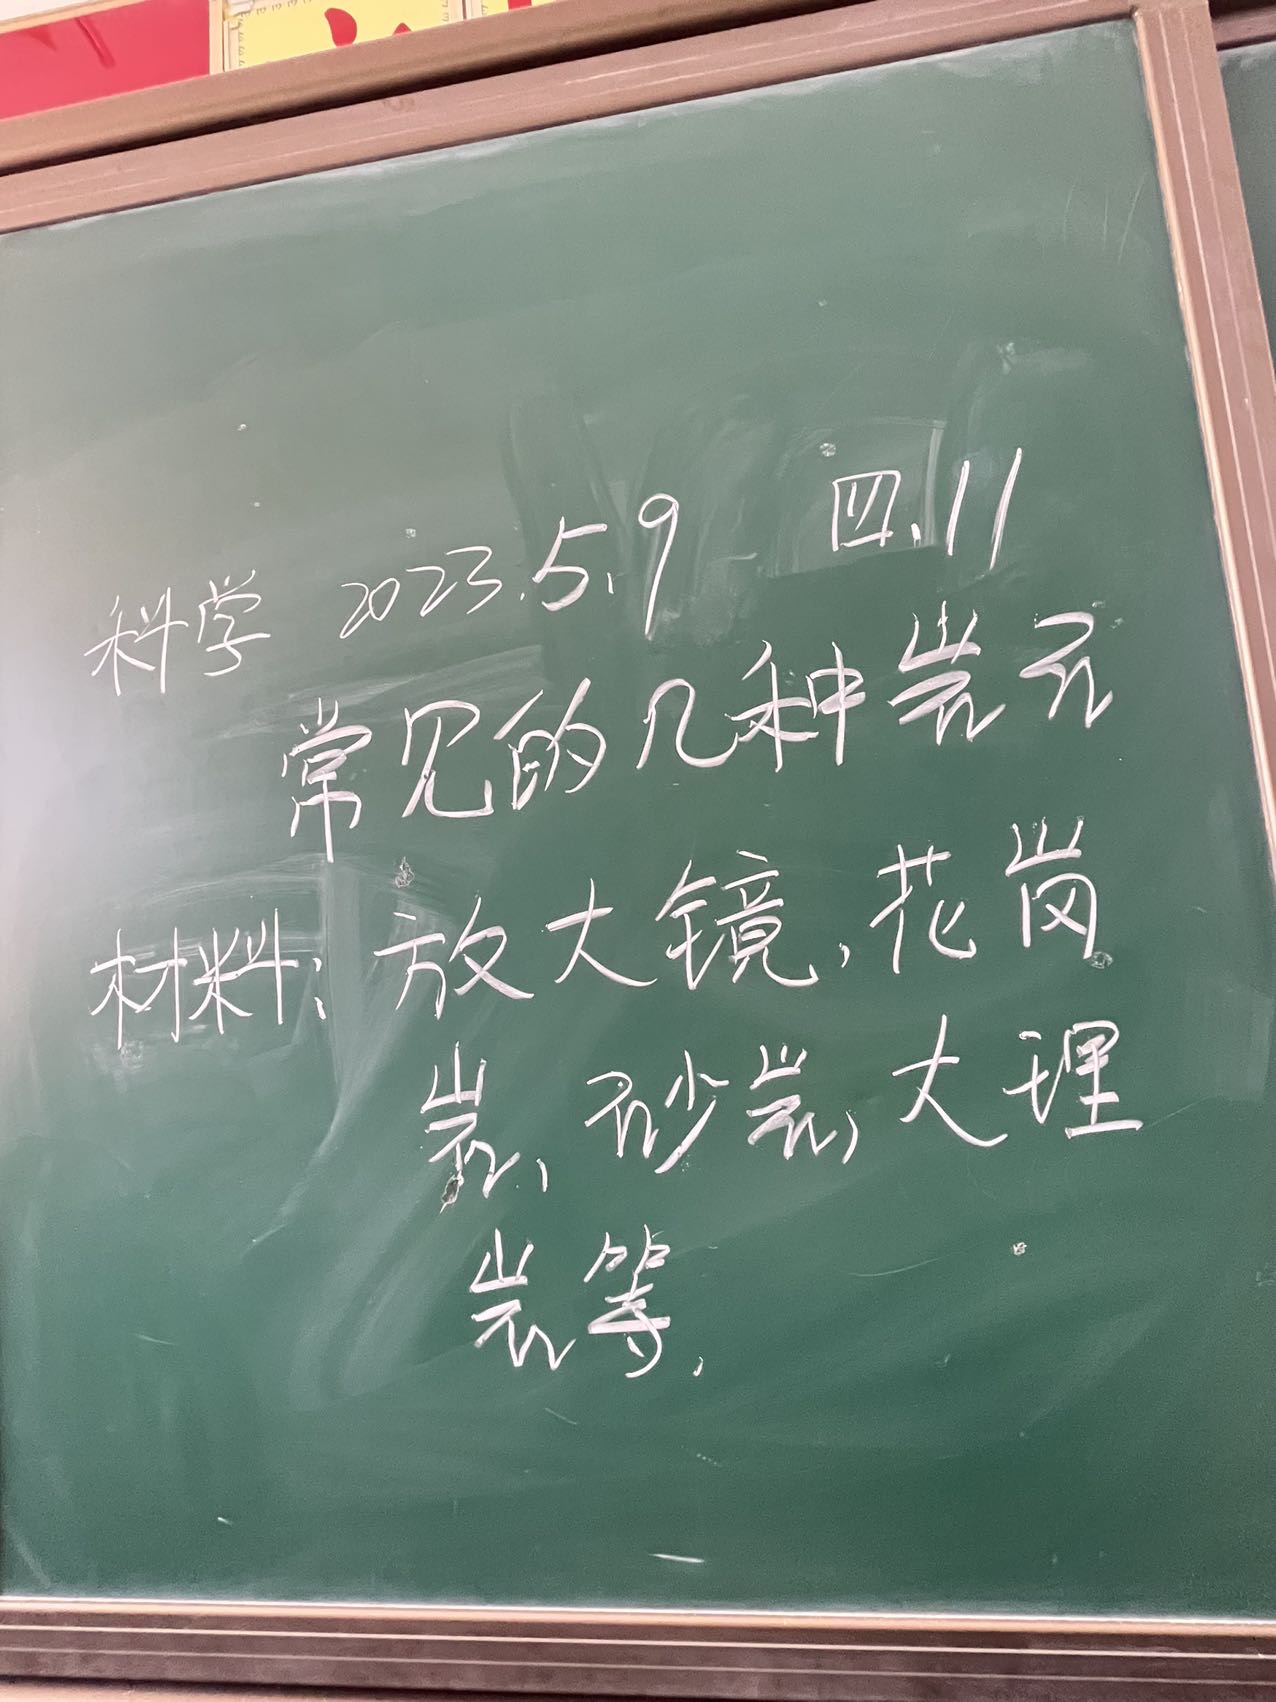 科学 2023.5.9 四.11
常见的几种岩石
材料:放大镜,花岗
岩、砂岩,大理
岩等.